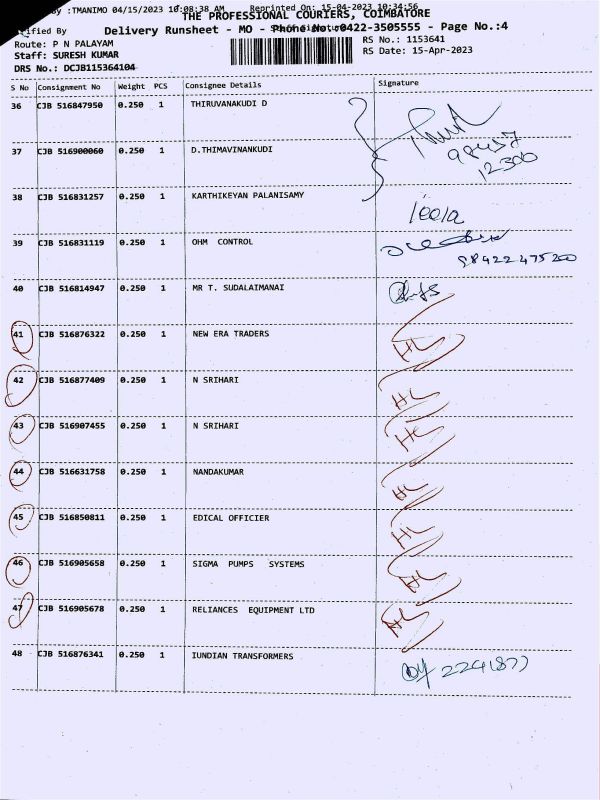 y :TMANIMO 04/15/2023 10:08:38 AM Reprinted On: 15-04-2023 10:34:56
THE PROFESSIONAL COURIERS, COIMBATORE
ified By
Delivery Runsheet - MO - Phone No.:0422-3505555 - Page No.:4
Route: P N PALAYAM
RS No.: 1153641
Staff: SURESH KUMAR
RS Date: 15-Apr-2023
DRS No.: DCJB115364104
S No Consignment No Weight PCS Consignee Details Signature
36 CJB 516847950 0.250 1 THIRUVANAKUDI D
37 CJB 516900060 0.250 1 D.THIMAVINANKUDI
12300
38 CJB 516831257 0.250 1 KARTHIKEYAN PALANISAMY
leela
39 CJB 516831119 0.250 1 OHM CONTROL
98422475200
40 CJB 516814947 0.250 1 MR T. SUDALAIMANAI
41 CJB 516876322 0.250 1 NEW ERA TRADERS
HL
42 CJB 516877409 0.250 1 N SRIHARI
HL
43 CJB 516907455 0.250 1 N SRIHARI
HL
44 CJB 516631758 0.250 1 NANDAKUMAR
HL
45 CJB 516850811 0.250 1 EDICAL OFFICIER
HL
46 CJB 516905658 0.250 1 SIGMA PUMPS SYSTEMS
HL
47 CJB 516905678 0.250 1 RELIANCES EQUIPMENT LTD
HL
48 CJB 516876341 0.250 1 IUNDIAN TRANSFORMERS
224(87)